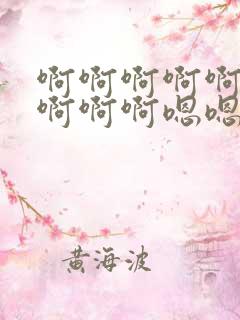 啊啊啊啊啊
啊啊啊嗯嗯
黄海波